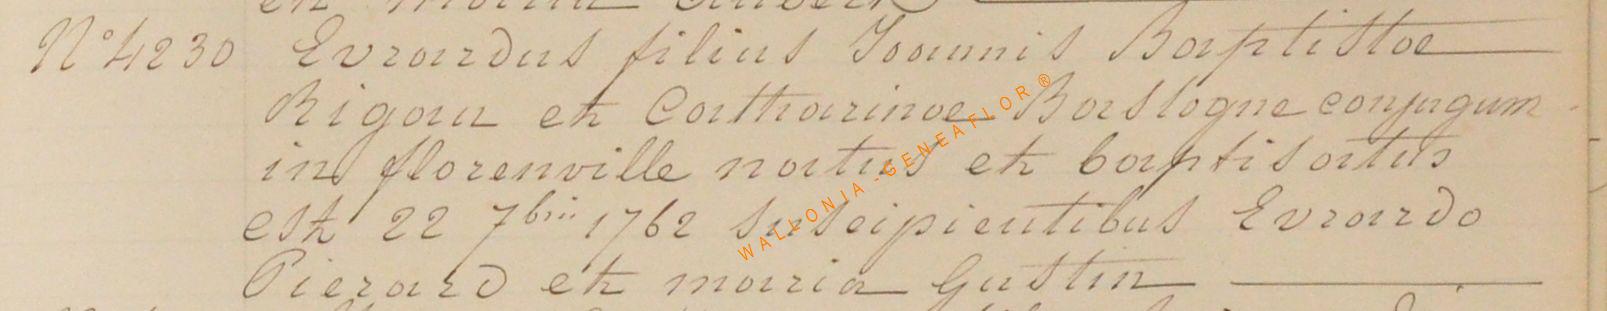 N° 4230 Evrardus filius Joannis Baptistae
Rigaux et Catharinae Bastogne conjugum
in florenville natus et baptisatus
est 22 7bris 1762 suscipientibus Evrardo
Pierard et maria Gustin
WALLONIA-GENEAFLOR®